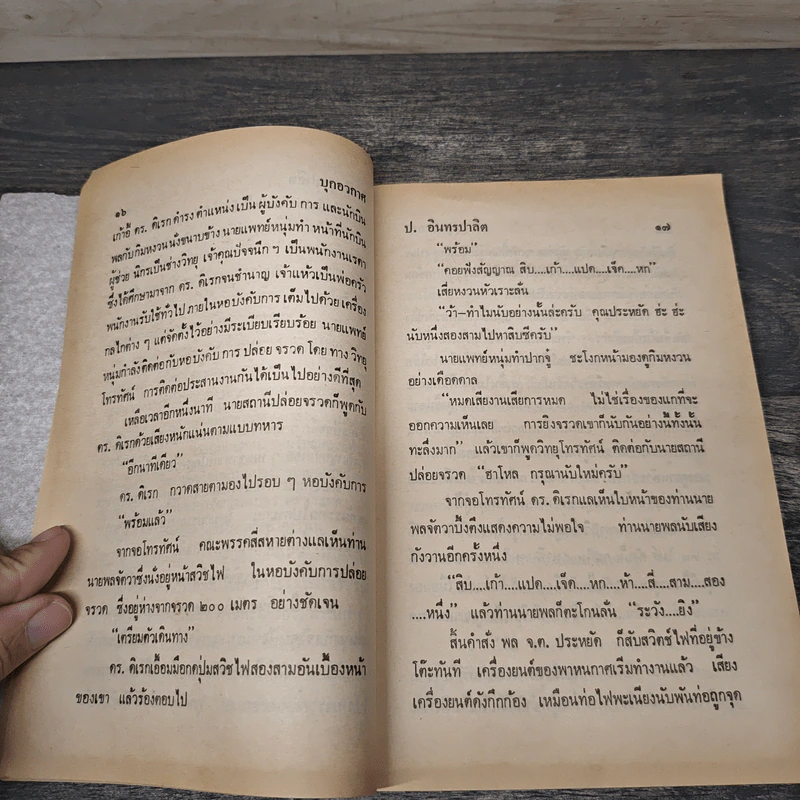 บุกอวกาศ
๑๖
เก้าอี้ ดร. ดิเรก ดำรง ตำแหน่ง เป็น ผู้บังคับ การ และนักบิน
พลกับกิมหงวน นั่งขนาบข้าง นายแพทย์หนุ่มทำ หน้าที่นักบิน
ผู้ช่วย นิกรเป็นช่างวิทยุ เจ้าคุณปัจจนึก ฯ เป็นพนักงานเรดา
ซึ่งได้ศึกษามาจาก ดร. ดิเรกจนชำนาญ เจ้าแห้วเป็นพ่อครัว
พนักงานรับใช้ทั่วไป ภายในหอบังคับการ เต็มไปด้วย เครื่อง
กลไกต่าง ๆ แต่จัดตั้งไว้อย่างมีระเบียบเรียบร้อย นายแพทย์
หนุ่มกำลังติดต่อกับหอบังคับ การ ปล่อย จรวด โดย ทาง วิทยุ
โทรทัศน์ การติดต่อประสานงานกันได้เป็นไปอย่างดีที่สุด
เหลือเวลาอีกหนึ่งนาที นายสถานีปล่อยจรวดก็พูดกับ
ดร. ดิเรกด้วยเสียงหนักแน่นตามแบบทหาร
“อีกนาทีเดียว”
ดร. ดิเรก กวาดสายตามองไปรอบ ๆ หอบังคับการ
“พร้อมแล้ว”
จากจอโทรทัศน์ คณะพรรคสี่สหายต่างแลเห็นท่าน
นายพลจัตวาซึ่งนั่งอยู่หน้าสวิชไฟ ในหอบังคับการปล่อย
จรวด ซึ่งอยู่ห่างจากจรวด ๒๐๐ เมตร อย่างชัดเจน
“เตรียมตัวเดินทาง”
ดร. ดิเรกเอื้อมมือกดปุ่มสวิชไฟสองสามอันเบื้องหน้า
ของเขา แล้วร้องตอบไป
ป. อินทรปาลิต
๑๗
“พร้อม”
“คอยฟังสัญญาณ สิบ....เก้า....แปด....เจ็ด....หก”
เสี่ยหงวนหัวเราะลั่น
“ว้า—ทำไมนับอย่างนั้นล่ะครับ คุณประหยัด ฮ่ะ ฮ่ะ
นับหนึ่งสองสามไปหาสิบซีครับ”
นายแพทย์หนุ่มทำปากจู๋ ชะโงกหน้ามองดูกิมหงวน
อย่างเดือดดาล
“หมดเสียงานเสียการหมด ไม่ใช่เรื่องของแกที่จะ
ออกความเห็นเลย การยิงจรวดเขาก็นับกันอย่างนี้ทั้งนั้น
ทะลึ่งมาก” แล้วเขาก็พูดวิทยุโทรทัศน์ ติดต่อกับนายสถานี
ปล่อยจรวด “ฮาโหล กรุณานับใหม่ครับ”
จากจอโทรทัศน์ ดร. ดิเรกแลเห็นใบหน้าของท่านนาย
พลจัตวาบึ้งตึงแสดงความไม่พอใจ ท่านนายพลนับเสียง
กังวานอีกครั้งหนึ่ง
“สิบ....เก้า....แปด....เจ็ด....หก....ห้า....สี่....สาม....สอง
....หนึ่ง” แล้วท่านนายพลก็ตะโกนลั่น “ระวัง....ยิง”
สิ้นคำสั่ง พล จ.ต. ประหยัด ก็สับสวิตช์ไฟที่อยู่ข้าง
โต๊ะทันที เครื่องยนต์ของพาหนกาศเริ่มทำงานแล้ว เสียง
เครื่องยนต์ดังกึกก้อง เหมือนท่อไฟพะเนียงนับพันท่อถูกจุด